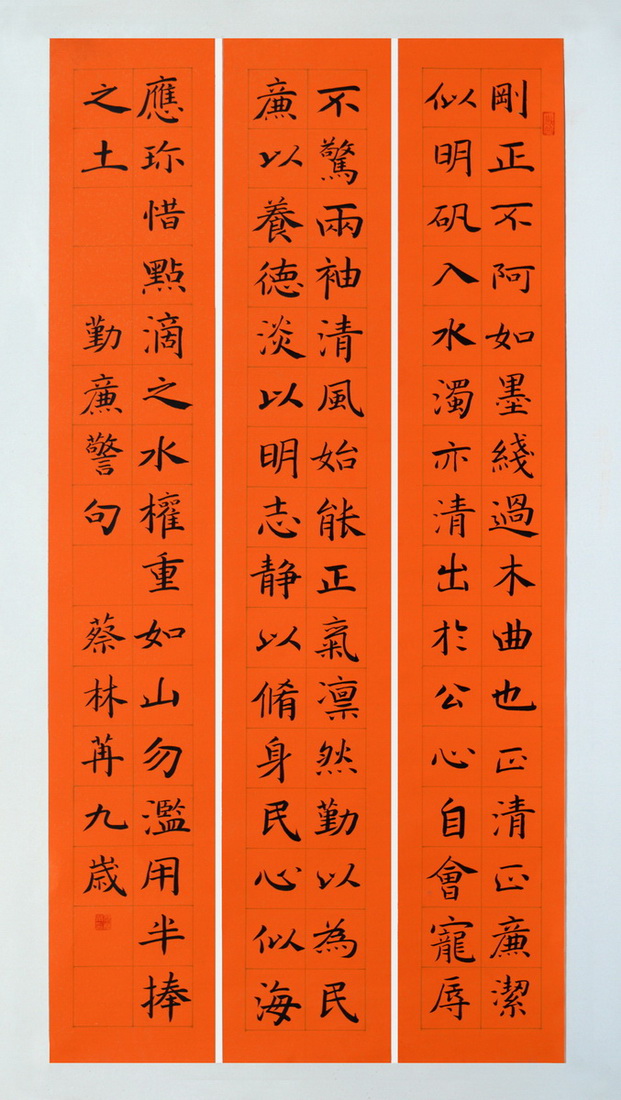 剛正不阿如墨綫過木曲也正清正廉潔
似明矾入水濁亦清出於公心自會寵辱
不驚兩袖清風始能正氣凛然勤以為民
廉以養德淡以明志静以脩身民心似海
應珎惜點滴之水權重如山勿濫用半捧
之土 勤廉警句 蔡林苒九歲